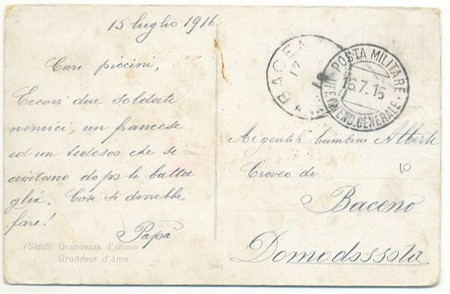 15 luglio 1916
Cari piccini,
Eccovi due soldati
nemici, un francese
ed un tedesco che si
aiutano dopo la batta
glia. Così si dovrebbe
fare!
Papà
(Sidoli) Grandezza d'animo
Grandeur d'Ame
BACENO
17
POSTA MILITARE
16.7.16
INTENDENZA GENERALE
Ai gentili bambini Alberti
Croveo di
10
Baceno
Domodossola